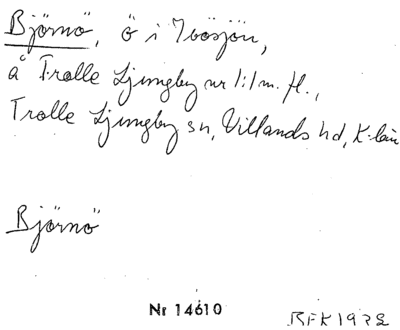 Björnö, ö i Ivösjön,
å Trolle Ljungby nr 1:1 m. fl.,
Trolle Ljungby sn, Villands hd, K-län
Björnö
Nr 14610
BEK 1938